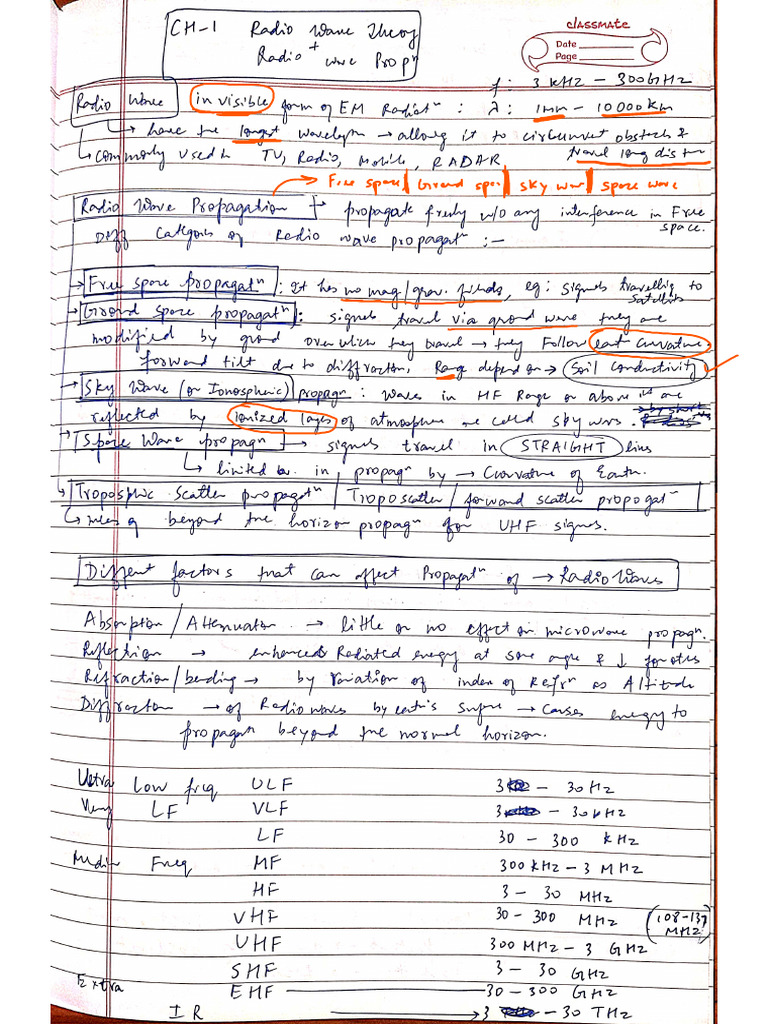 CH-1 Radio Wave Theory
Radio + wave Propⁿ
classmate
Date
Page
f: 3 kHz - 300GHz
Radio Wave invisible form of EM Radiatⁿ : λ: 1mm - 10000km
↳ have the longest wavelength → allowing it to circumvent obstacls &
travel long distan
↳ commonly used in TV, Radio, Mobile, RADAR
→ Free space | Ground spac | sky wav | space wave
Radio Wave Propagation → propagate freely w/o any interference in Free
space.
Diff categories of Radio wave propagatⁿ :-
→ Free space propagatⁿ : It has no mag/grav. fields, eg: signals travelling to
satellites
→ Ground space propagatⁿ : signals travel via ground wave they are
modified by ground over which they travel → they follow earth curvature,
forward tilt due to diffraction, Range depend on → Soil conductivity
→ Sky Wave (or Ionospheric) propagⁿ : waves in HF Range or above it are
reflected by ionized layes of atmosphere are called sky wavs.
→ Space Wave propagⁿ → signals travel in STRAIGHT lines
↳ limited in propagⁿ by → Curvature of Earth.
↳ Tropospheric scatter propagatⁿ / Troposcatter / forward scatter propogatⁿ
↳ beyond the horizon propagⁿ for UHF signls.
Different factors that can affect Propagatⁿ of → Radio Waves
Absorption / Attenuation → little or no effect on microwave propagⁿ.
Reflection → enhances Radiated energy at some angle & ↓ for othrs
Refraction / bending → by variation of index of Refrⁿ as Altitude
Diffraction → of Radio waves by earth's surface → causes energy to
propagate beyond the normal horizon.
Ultra Low freq ULF 3 - 30 Hz
Very LF VLF 3 - 30 kHz
LF 30 - 300 kHz
Medium Freq MF 300 kHz - 3 MHz
HF 3 - 30 MHz
VHF 30 - 300 MHz (108-137 MHz)
UHF 300 MHz - 3 GHz
SHF 3 - 30 GHz
Extra EHF 30 - 300 GHz
IR → 3 - 30 THz